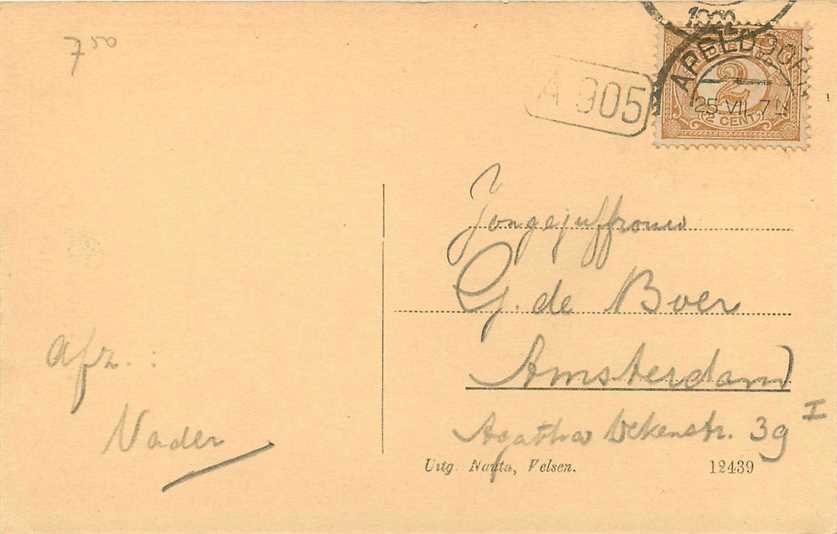 7 50
A 905
APELDOORN
25 VII 7 N
2
2 CENT
Jongejuffrouw
G. de Boer
Amsterdam
Agatha Dekenstr. 39 I
Afz.:
Vader
Uitg. Nauta, Velsen.
12439